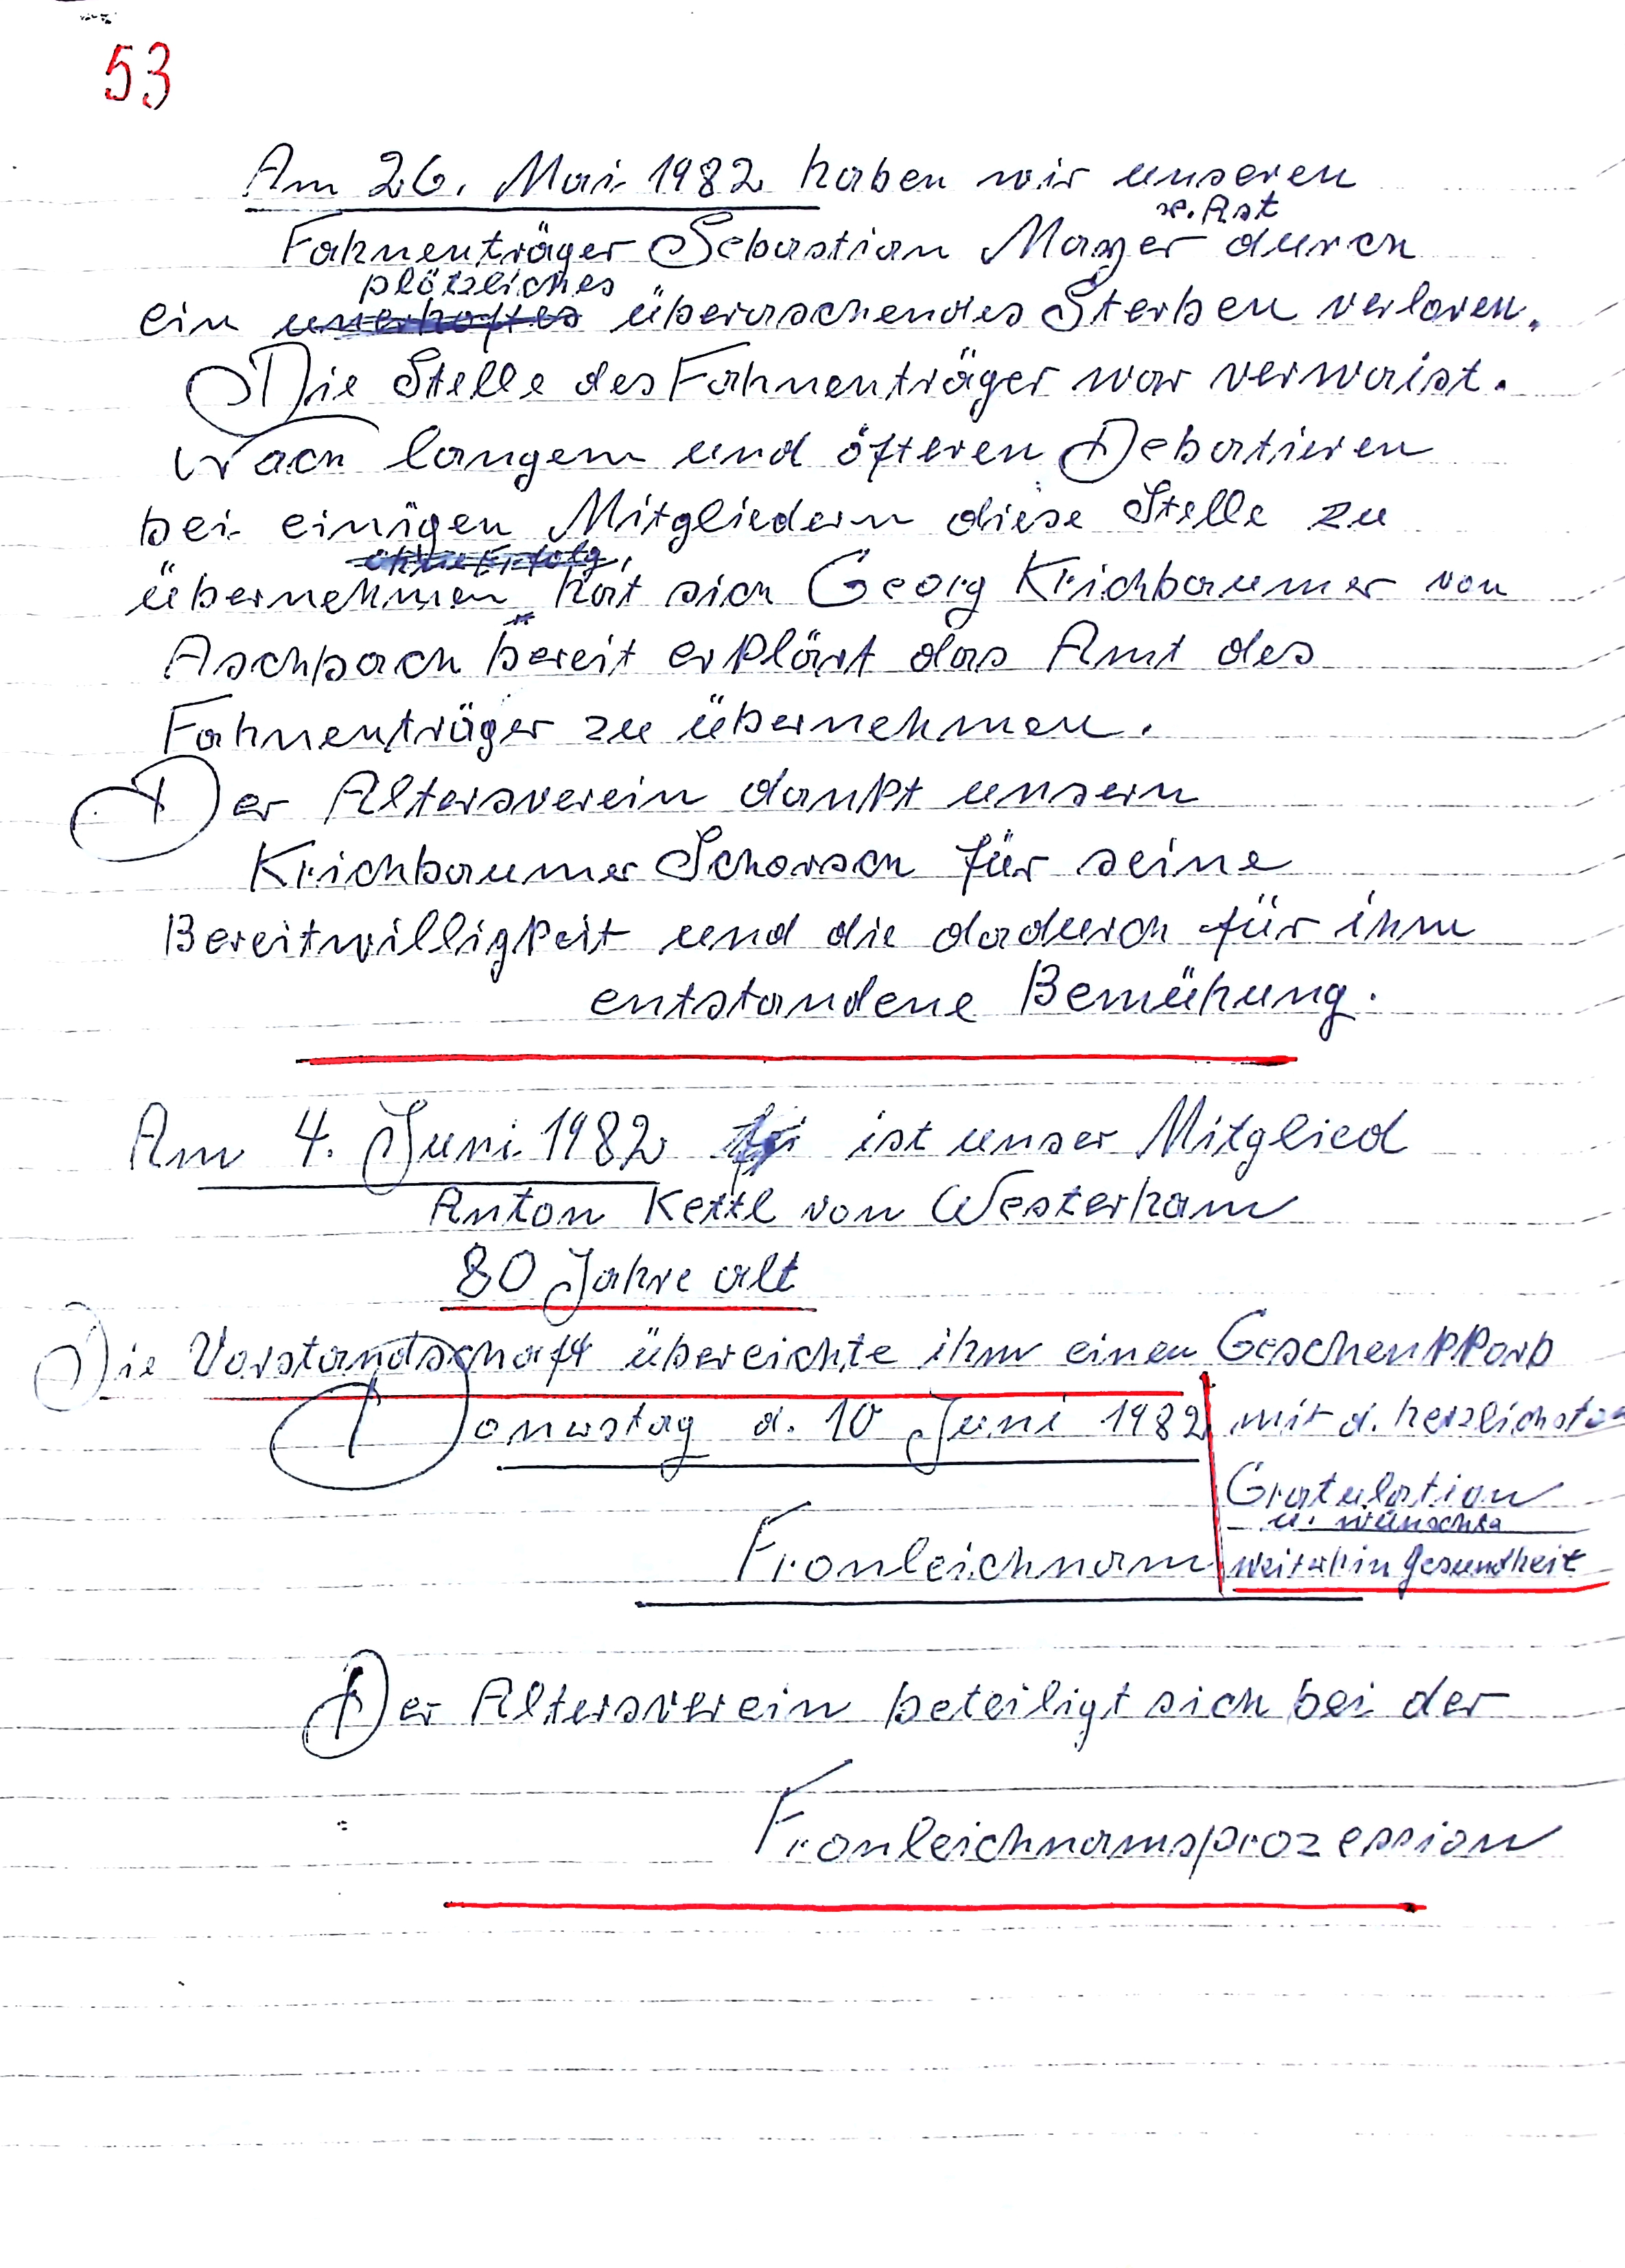 53
Am 26. Mai 1982 haben wir unseren
v. Ast
Fahnenträger Sebastian Mayer durch
plötzliches
ein unerhoftes überaschendes Sterben verloren.
Die Stelle des Fahnenträger war verwaist.
Nach langem und öfteren Debatieren
bei einigen Mitgliedern diese Stelle zu
ohne Erfolg,
übernehmen hat sich Georg Krichbaumer von
Aschbach bereit erklärt das Amt des
Fahnenträger zu übernehmen.
Der Altersverein dankt unsern
Krichbaumer Schorsch für seine
Bereitwilligkeit und die dadurch für ihm
entstandene Bemühung.
Am 4. Juni 1982 ist unser Mitglied
Anton Kettl von Westerham
80 Jahre alt
Die Vorstandschaft übereichte ihm einen Geschenkkorb
mit d. herzlichsten
Gratulation
u. wünschte
weiterhin Gesundheit
Donerstag d. 10 Juni 1982
Fronleichnam
Der Altersverein beteiligt sich bei der
Fronleichnamsprozession